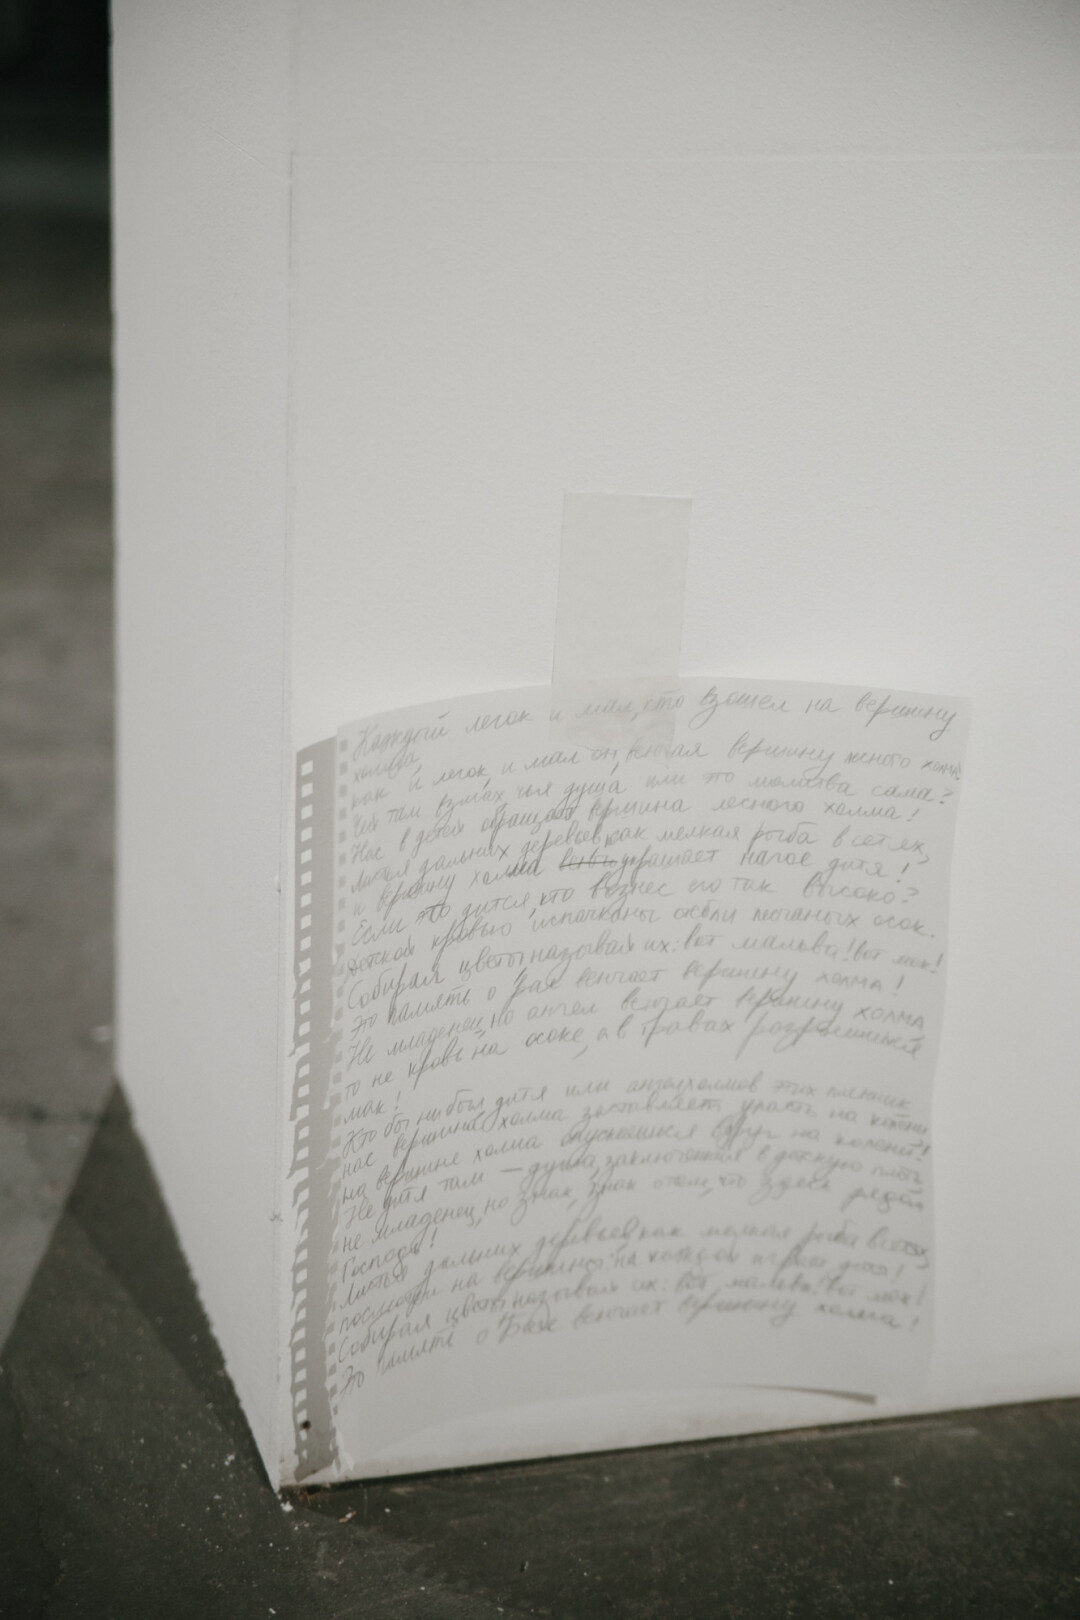 Каждый легок и мал, кто взошел на вершину
холма
как и легок, и мал он, венчая вершину лесного холма!
Чей там взмах, чья душа или это молитва сама?
Нас в детей обращает вершина лесного холма!
Листья дальних деревьев, как мелкая рыба в сетях,
и вершину холма украшает нагое дитя!
Если это дитя, кто вознес его так высоко?
Детской кровью испачканы осок.
Собирая цветы, называй их: вот мальва! вот мак!
Это память о Боге венчает вершину холма!
Не младенец, но ангел венчает вершину холма
то не кровь на осоке, а в травах разросшийся
мак!
Кто бы ни был, дитя или ангел, холмов этих пленник
нас вершина холма заставляет упасть на колени
на вершине холма опускаешься вдруг на колени!
Не дитя там — душа, заключенная в детскую плоть
не младенец, но знак, знак о том, что здесь рядом
Господь!
Листья дальних деревьев, как мелкая рыба в сетях,
посмотри на вершины: на каждой играет дитя!
Собирая цветы, называй их: вот мальва! вот мак!
Это память о Боге венчает вершину холма!